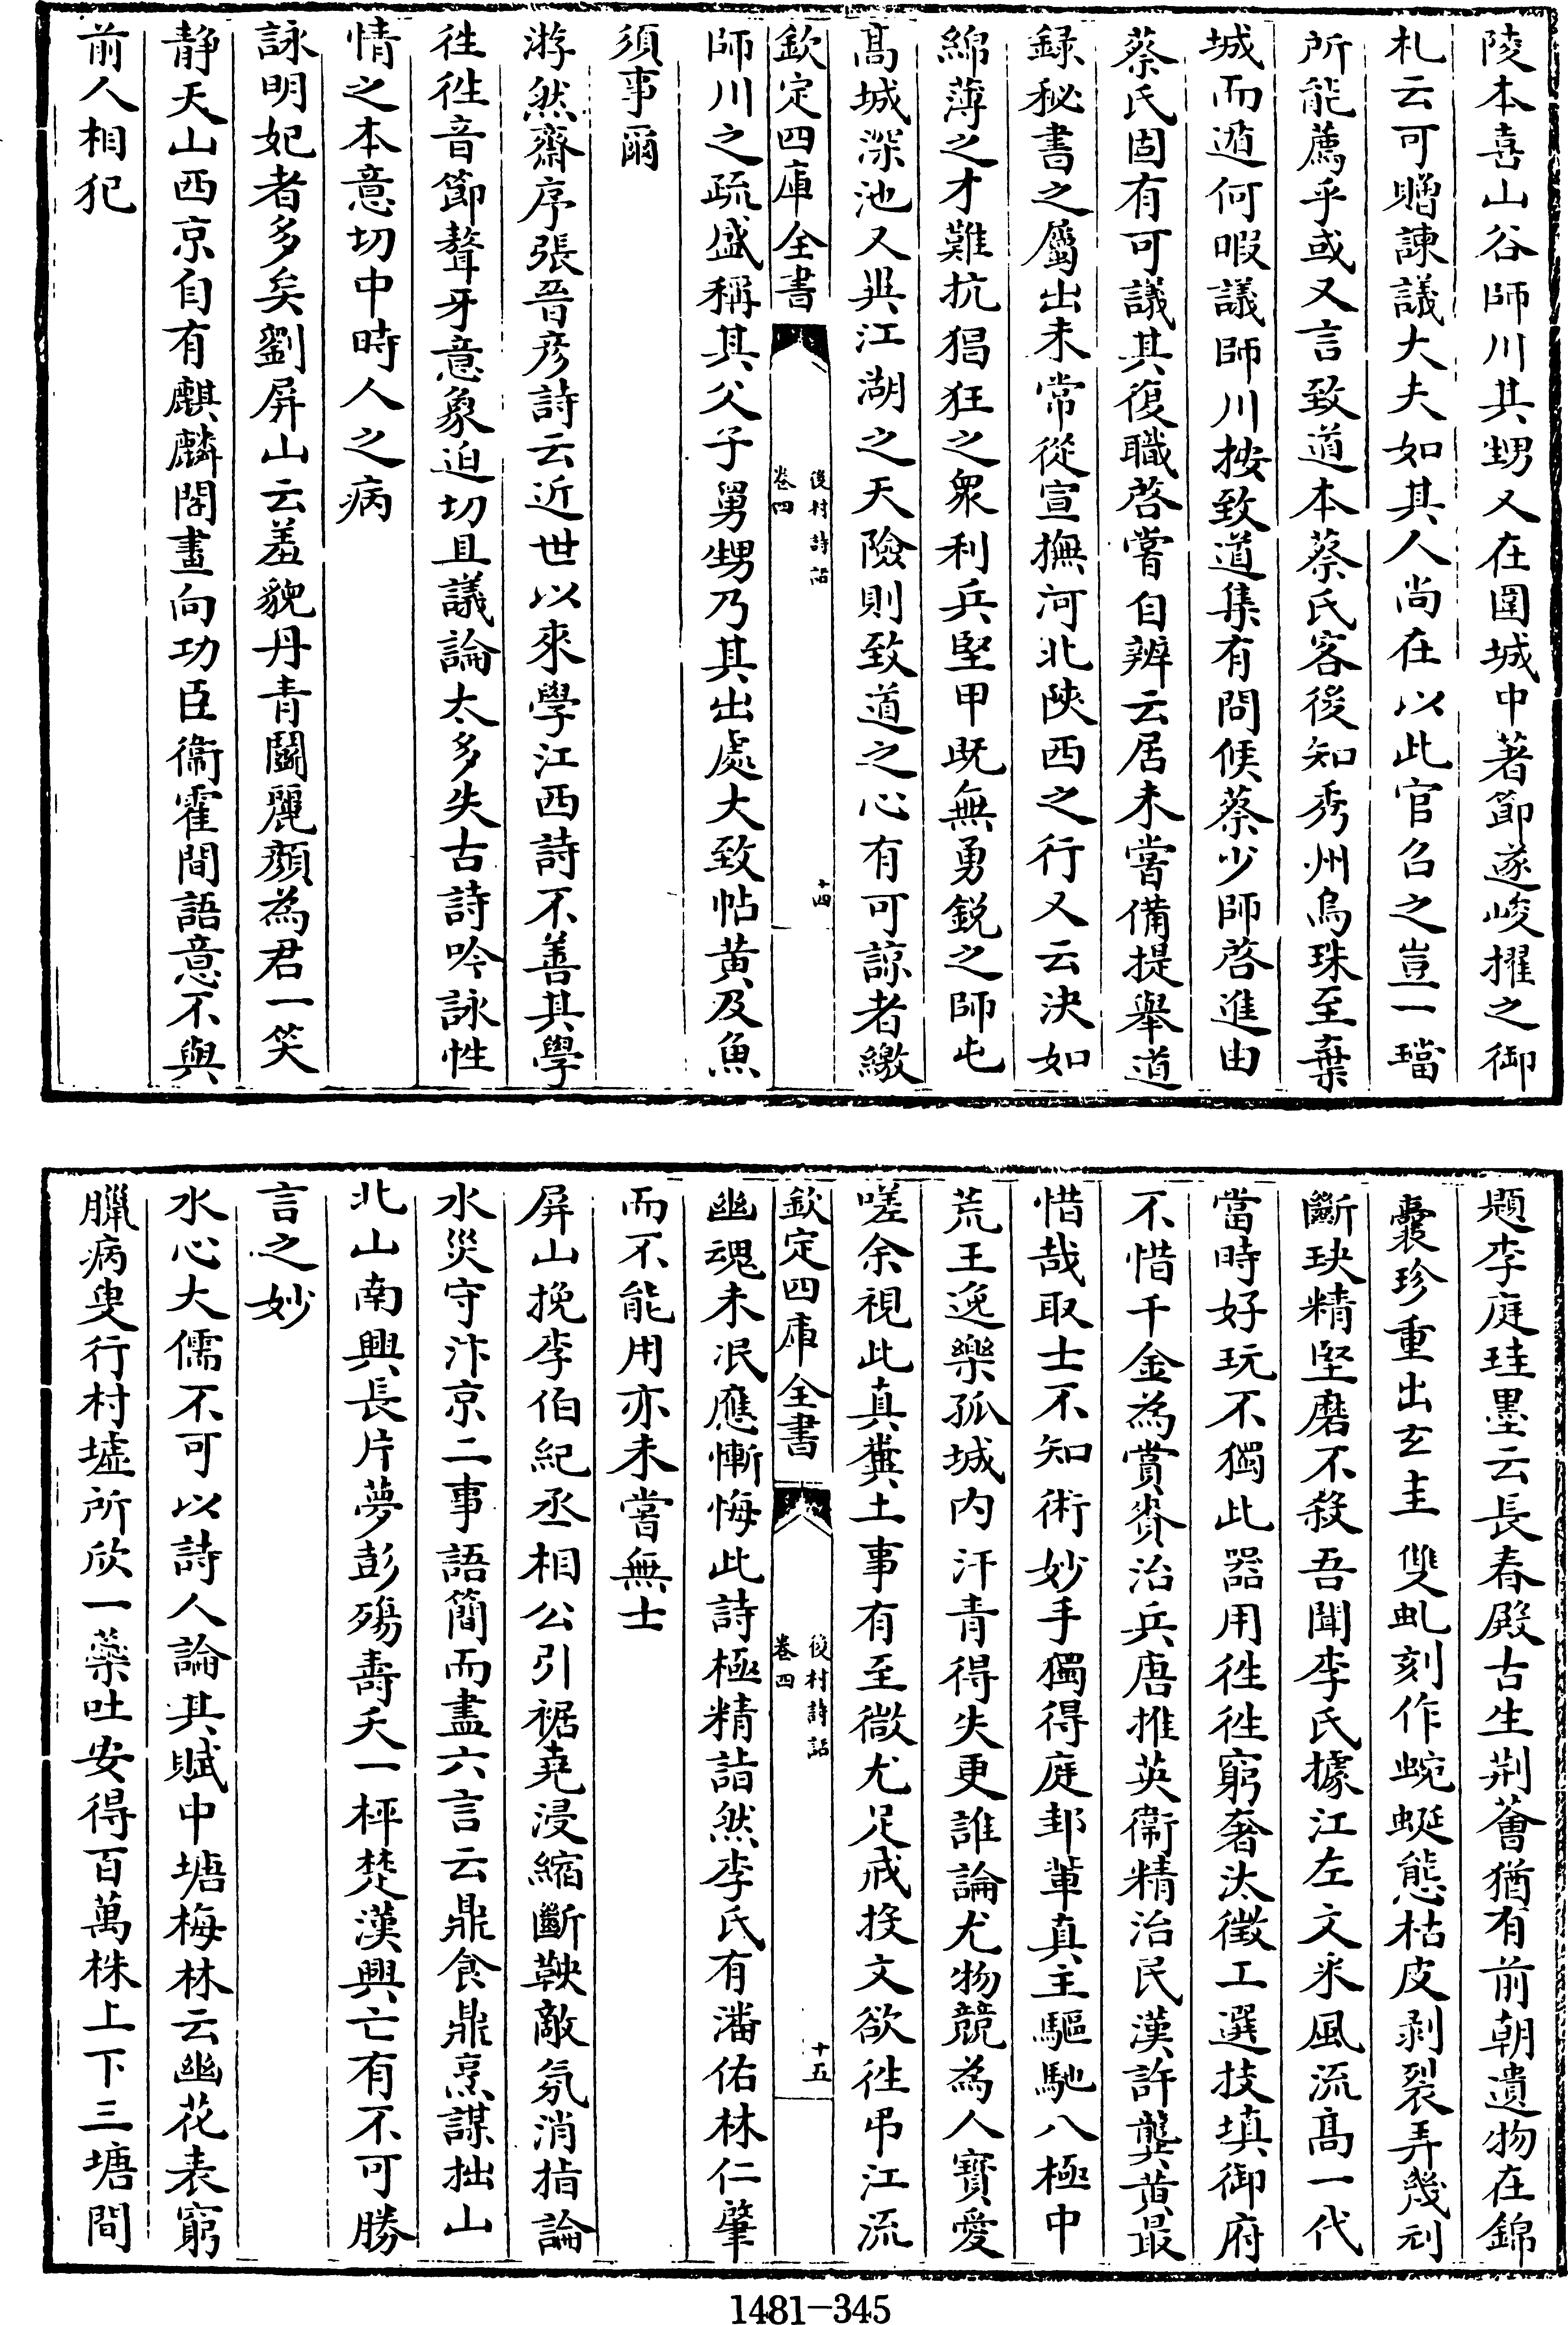 陵本喜山谷師川其甥又在圍城中著節遂峻擢之御
札云可贈諫議大夫如其人尚在以此官召之豈一璫
所能薦乎或又言致道本蔡氏客後知秀州烏珠至棄
城而遁何暇議師川按致道集有問候蔡少師啓進由
蔡氏固有可議其復職啓嘗自辨云居未嘗備提舉道
録秘書之屬出未常從宣撫河北陜西之行又云決如
綿薄之才難抗猖狂之衆利兵堅甲既無勇鋭之師屯
髙城深池又與江湖之天險則致道之心有可諒者繳
欽定四庫全書
後村詩話
卷四
十四
師川之疏盛稱其父子舅甥乃其出處大致帖黄及魚
須事爾
游然齋序張晉彦詩云近世以來學江西詩不善其學
徃徃音節聱牙意象迫切且議論太多失古詩吟詠性
情之本意切中時人之病
詠明妃者多矣劉屏山云羞貌丹青鬬麗顔為君一笑
静天山西京自有麒麟閣畫向功臣衞霍間語意不與
前人相犯
題李庭珪墨云長春殿古生荆薈猶有前朝遺物在錦
囊珍重出玄圭雙虬刻作蜿蜒態枯皮剥裂弄幾刓
斷玦精堅磨不殺吾聞李氏據江左文采風流髙一代
當時好玩不獨此器用徃徃窮奢汰徴工選技填御府
不惜千金為賞賚治兵唐推英衞精治民漢許龔黄最
惜哉取士不知術妙手獨得庭邽輩真主驅馳八極中
荒王逸樂孤城内汗青得失更誰論尤物競為人寳愛
嗟余視此真糞土事有至微尤足戒投文欲徃弔江流
欽定四庫全書
後村詩話
卷四
十五
幽魂未泯應慚悔此詩極精詣然李氏有潘佑林仁肇
而不能用亦未嘗無士
屏山挽李伯紀丞相公引裾堯浸縮斷鞅敵氛消指論
水災守汴京二事語簡而盡六言云鼎食鼎烹謀拙山
北山南興長片夢彭殤壽夭一枰楚漢興亡有不可勝
言之妙
水心大儒不可以詩人論其賦中塘梅林云幽花表窮
臘病叟行村墟所欣一蘂吐安得百萬株上下三塘間
1481-345